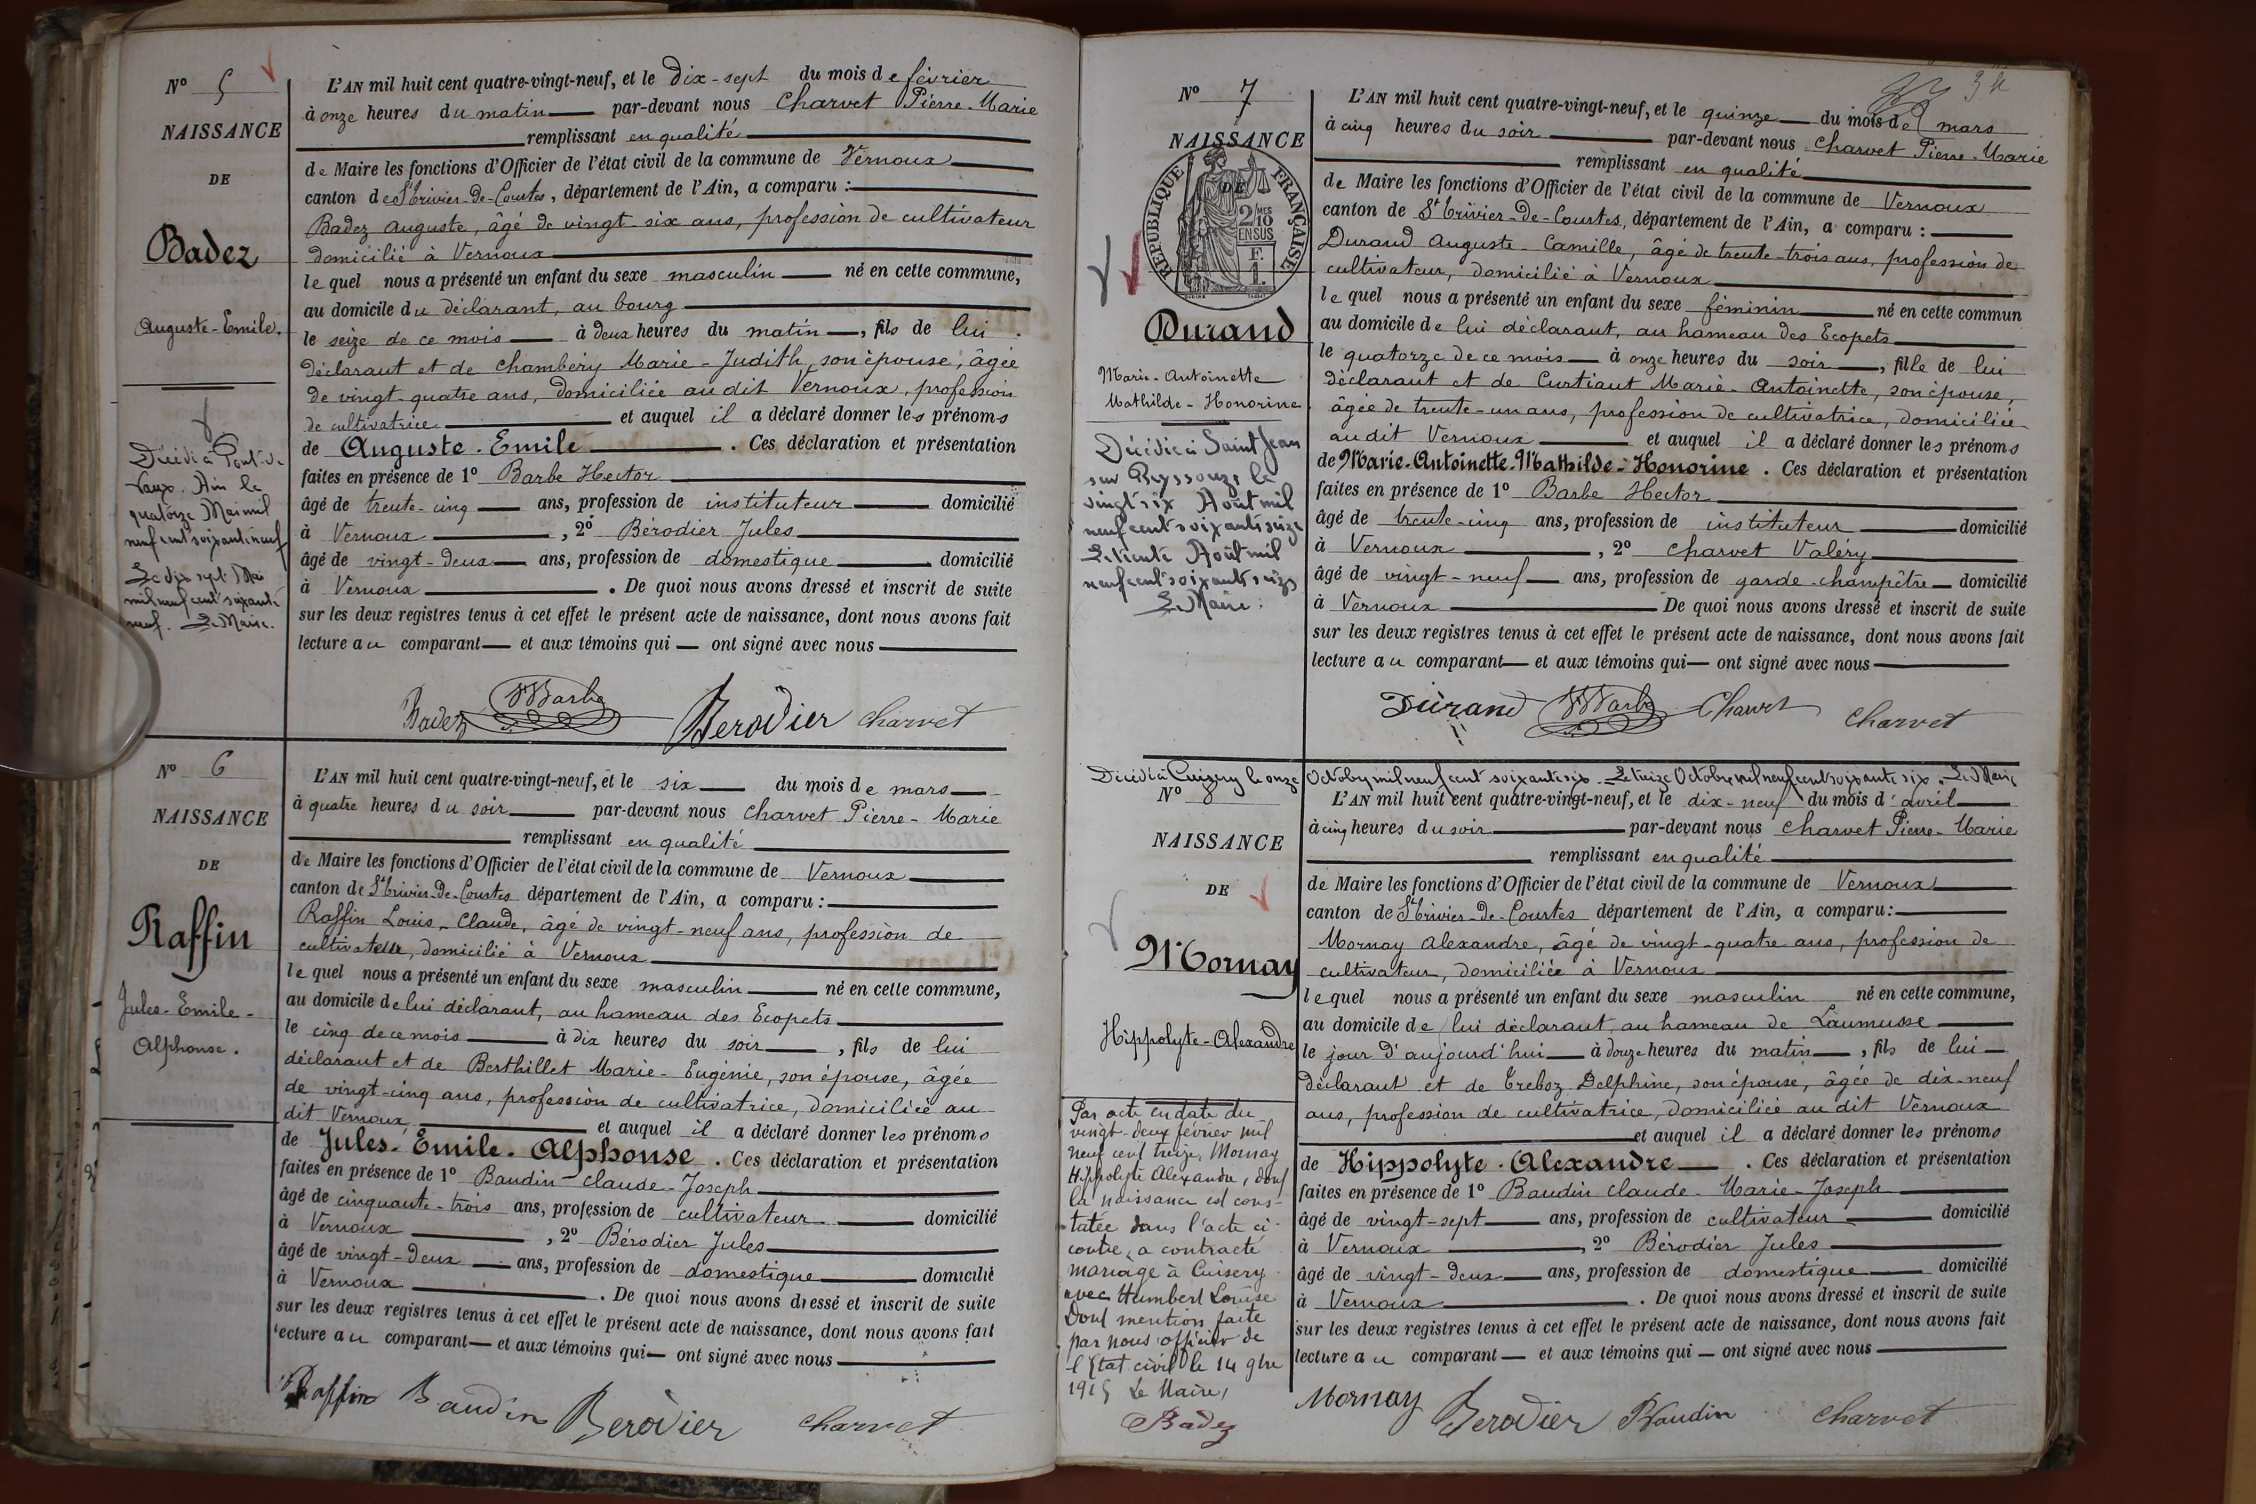 N° 5
NAISSANCE
DE
Badez
Auguste-Emile.
Décédé à Pont-de
Vaux. Ain le
quatorze Mai mil
neuf cent soixante neuf
Le dix sept Mai
mil neuf cent soixante
neuf. Le Maire.
L'AN mil huit cent quatre-vingt-neuf, et le dix-sept du mois de février
à onze heures du matin par-devant nous Charvet Pierre-Marie
remplissant en qualité
de Maire les fonctions d'Officier de l'état civil de la commune de Vernoux
canton de St Trivier-de-Courtes, département de l'Ain, a comparu :
Badez Auguste, âgé de vingt-six ans, profession de cultivateur
domicilié à Vernoux
lequel nous a présenté un enfant du sexe masculin né en cette commune,
au domicile du déclarant, au bourg
le seize de ce mois à deux heures du matin, fils de lui
déclarant et de Chambéry Marie-Judith, son épouse, âgée
de vingt-quatre ans, domiciliée au dit Vernoux, profession
de cultivatrice et auquel il a déclaré donner les prénoms
de Auguste-Emile. Ces déclaration et présentation
faites en présence de 1° Barbe Hector
âgé de trente-cinq ans, profession de instituteur domicilié
à Vernoux, 2° Bérodier Jules
âgé de vingt-deux ans, profession de domestique domicilié
à Vernoux. De quoi nous avons dressé et inscrit de suite
sur les deux registres tenus à cet effet le présent acte de naissance, dont nous avons fait
lecture au comparant et aux témoins qui ont signé avec nous
Badez Barbe Berodier Charvet
N° 6
NAISSANCE
DE
Raffin
Jules-Emile-
Alphonse.
L'AN mil huit cent quatre-vingt-neuf, et le six du mois de mars
à quatre heures du soir par-devant nous Charvet Pierre-Marie
remplissant en qualité
de Maire les fonctions d'Officier de l'état civil de la commune de Vernoux
canton de St Trivier-de-Courtes département de l'Ain, a comparu :
Raffin Louis-Claude, âgé de vingt-neuf ans, profession de
cultivateur, domicilié à Vernoux
lequel nous a présenté un enfant du sexe masculin né en cette commune,
au domicile de lui déclarant, au hameau des Ecopets
le cinq de ce mois à dix heures du soir, fils de lui
déclarant et de Berthillet Marie-Eugénie, son épouse, âgée
de vingt-cinq ans, profession de cultivatrice, domiciliée au
dit Vernoux et auquel il a déclaré donner les prénoms
de Jules-Emile-Alphonse. Ces déclaration et présentation
faites en présence de 1° Baudin Claude-Joseph
âgé de cinquante-trois ans, profession de cultivateur domicilié
à Vernoux, 2° Bérodier Jules
âgé de vingt-deux ans, profession de domestique domicilié
à Vernoux. De quoi nous avons dressé et inscrit de suite
sur les deux registres tenus à cet effet le présent acte de naissance, dont nous avons fait
lecture au comparant et aux témoins qui ont signé avec nous
Raffin Baudin Berodier Charvet
34
N° 7
NAISSANCE
DE
RÉPUBLIQUE FRANÇAISE
2 MES
10
EN SUS
F.
1.
Durand
Marie-Antoinette
Mathilde-Honorine
Décédée à Saint Jean
sur Reyssouze le
vingt six Août mil
neuf cent soixante seize
Le trente Août mil
neuf cent soixante seize
Le Maire :
L'AN mil huit cent quatre-vingt-neuf, et le quinze du mois de mars
à cinq heures du soir par-devant nous Charvet Pierre-Marie
remplissant en qualité
de Maire les fonctions d'Officier de l'état civil de la commune de Vernoux
canton de St Trivier-de-Courtes, département de l'Ain, a comparu :
Durand Auguste-Camille, âgé de trente-trois ans, profession de
cultivateur, domicilié à Vernoux
lequel nous a présenté un enfant du sexe féminin né en cette commun
au domicile de lui déclarant, au hameau des Ecopets
le quatorze de ce mois à onze heures du soir, fille de lui
déclarant et de Curtiaut Marie-Antoinette, son épouse,
âgée de trente-un ans, profession de cultivatrice, domiciliée
au dit Vernoux et auquel il a déclaré donner les prénoms
de Marie-Antoinette-Mathilde-Honorine. Ces déclaration et présentation
faites en présence de 1° Barbe Hector
âgé de trente-cinq ans, profession de instituteur domicilié
à Vernoux, 2° Charvet Valéry
âgé de vingt-neuf ans, profession de garde-champêtre domicilié
à Vernoux De quoi nous avons dressé et inscrit de suite
sur les deux registres tenus à cet effet le présent acte de naissance, dont nous avons fait
lecture au comparant et aux témoins qui ont signé avec nous
Durand Barbe Charvet Charvet
Décédé à Cuisery le onze Octobre mil neuf cent soixante six. Le treize Octobre mil neuf cent soixante six. Le Maire
N° 8
NAISSANCE
DE
Mornay
Hippolyte-Alexandre
Par acte en date du
vingt-deux février mil
neuf cent treize, Mornay
Hippolyte Alexandre, dont
la naissance est cons-
tatée dans l'acte ci-
contre, a contracté
mariage à Cuisery
avec Humbert Louise
Dont mention faite
par nous officier de
l'Etat civil le 14 9bre
1915 Le Maire,
Badez
L'AN mil huit cent quatre-vingt-neuf, et le dix-neuf du mois d'avril
à cinq heures du soir par-devant nous Charvet Pierre-Marie
remplissant en qualité
de Maire les fonctions d'Officier de l'état civil de la commune de Vernoux
canton de St Trivier-de-Courtes département de l'Ain, a comparu :
Mornay Alexandre, âgé de vingt-quatre ans, profession de
cultivateur, domiciliée à Vernoux
lequel nous a présenté un enfant du sexe masculin né en cette commune,
au domicile de lui déclarant, au hameau de Laumusse
le jour d'aujourd'hui à douze heures du matin, fils de lui
déclarant et de Treboz Delphine, son épouse, âgée de dix-neuf
ans, profession de cultivatrice, domiciliée au dit Vernoux
et auquel il a déclaré donner les prénoms
de Hippolyte-Alexandre. Ces déclaration et présentation
faites en présence de 1° Baudin Claude-Marie-Joseph
âgé de vingt-sept ans, profession de cultivateur domicilié
à Vernoux, 2° Bérodier Jules
âgé de vingt-deux ans, profession de domestique domicilié
à Vernoux. De quoi nous avons dressé et inscrit de suite
sur les deux registres tenus à cet effet le présent acte de naissance, dont nous avons fait
lecture au comparant et aux témoins qui ont signé avec nous
Mornay Berodier Baudin Charvet